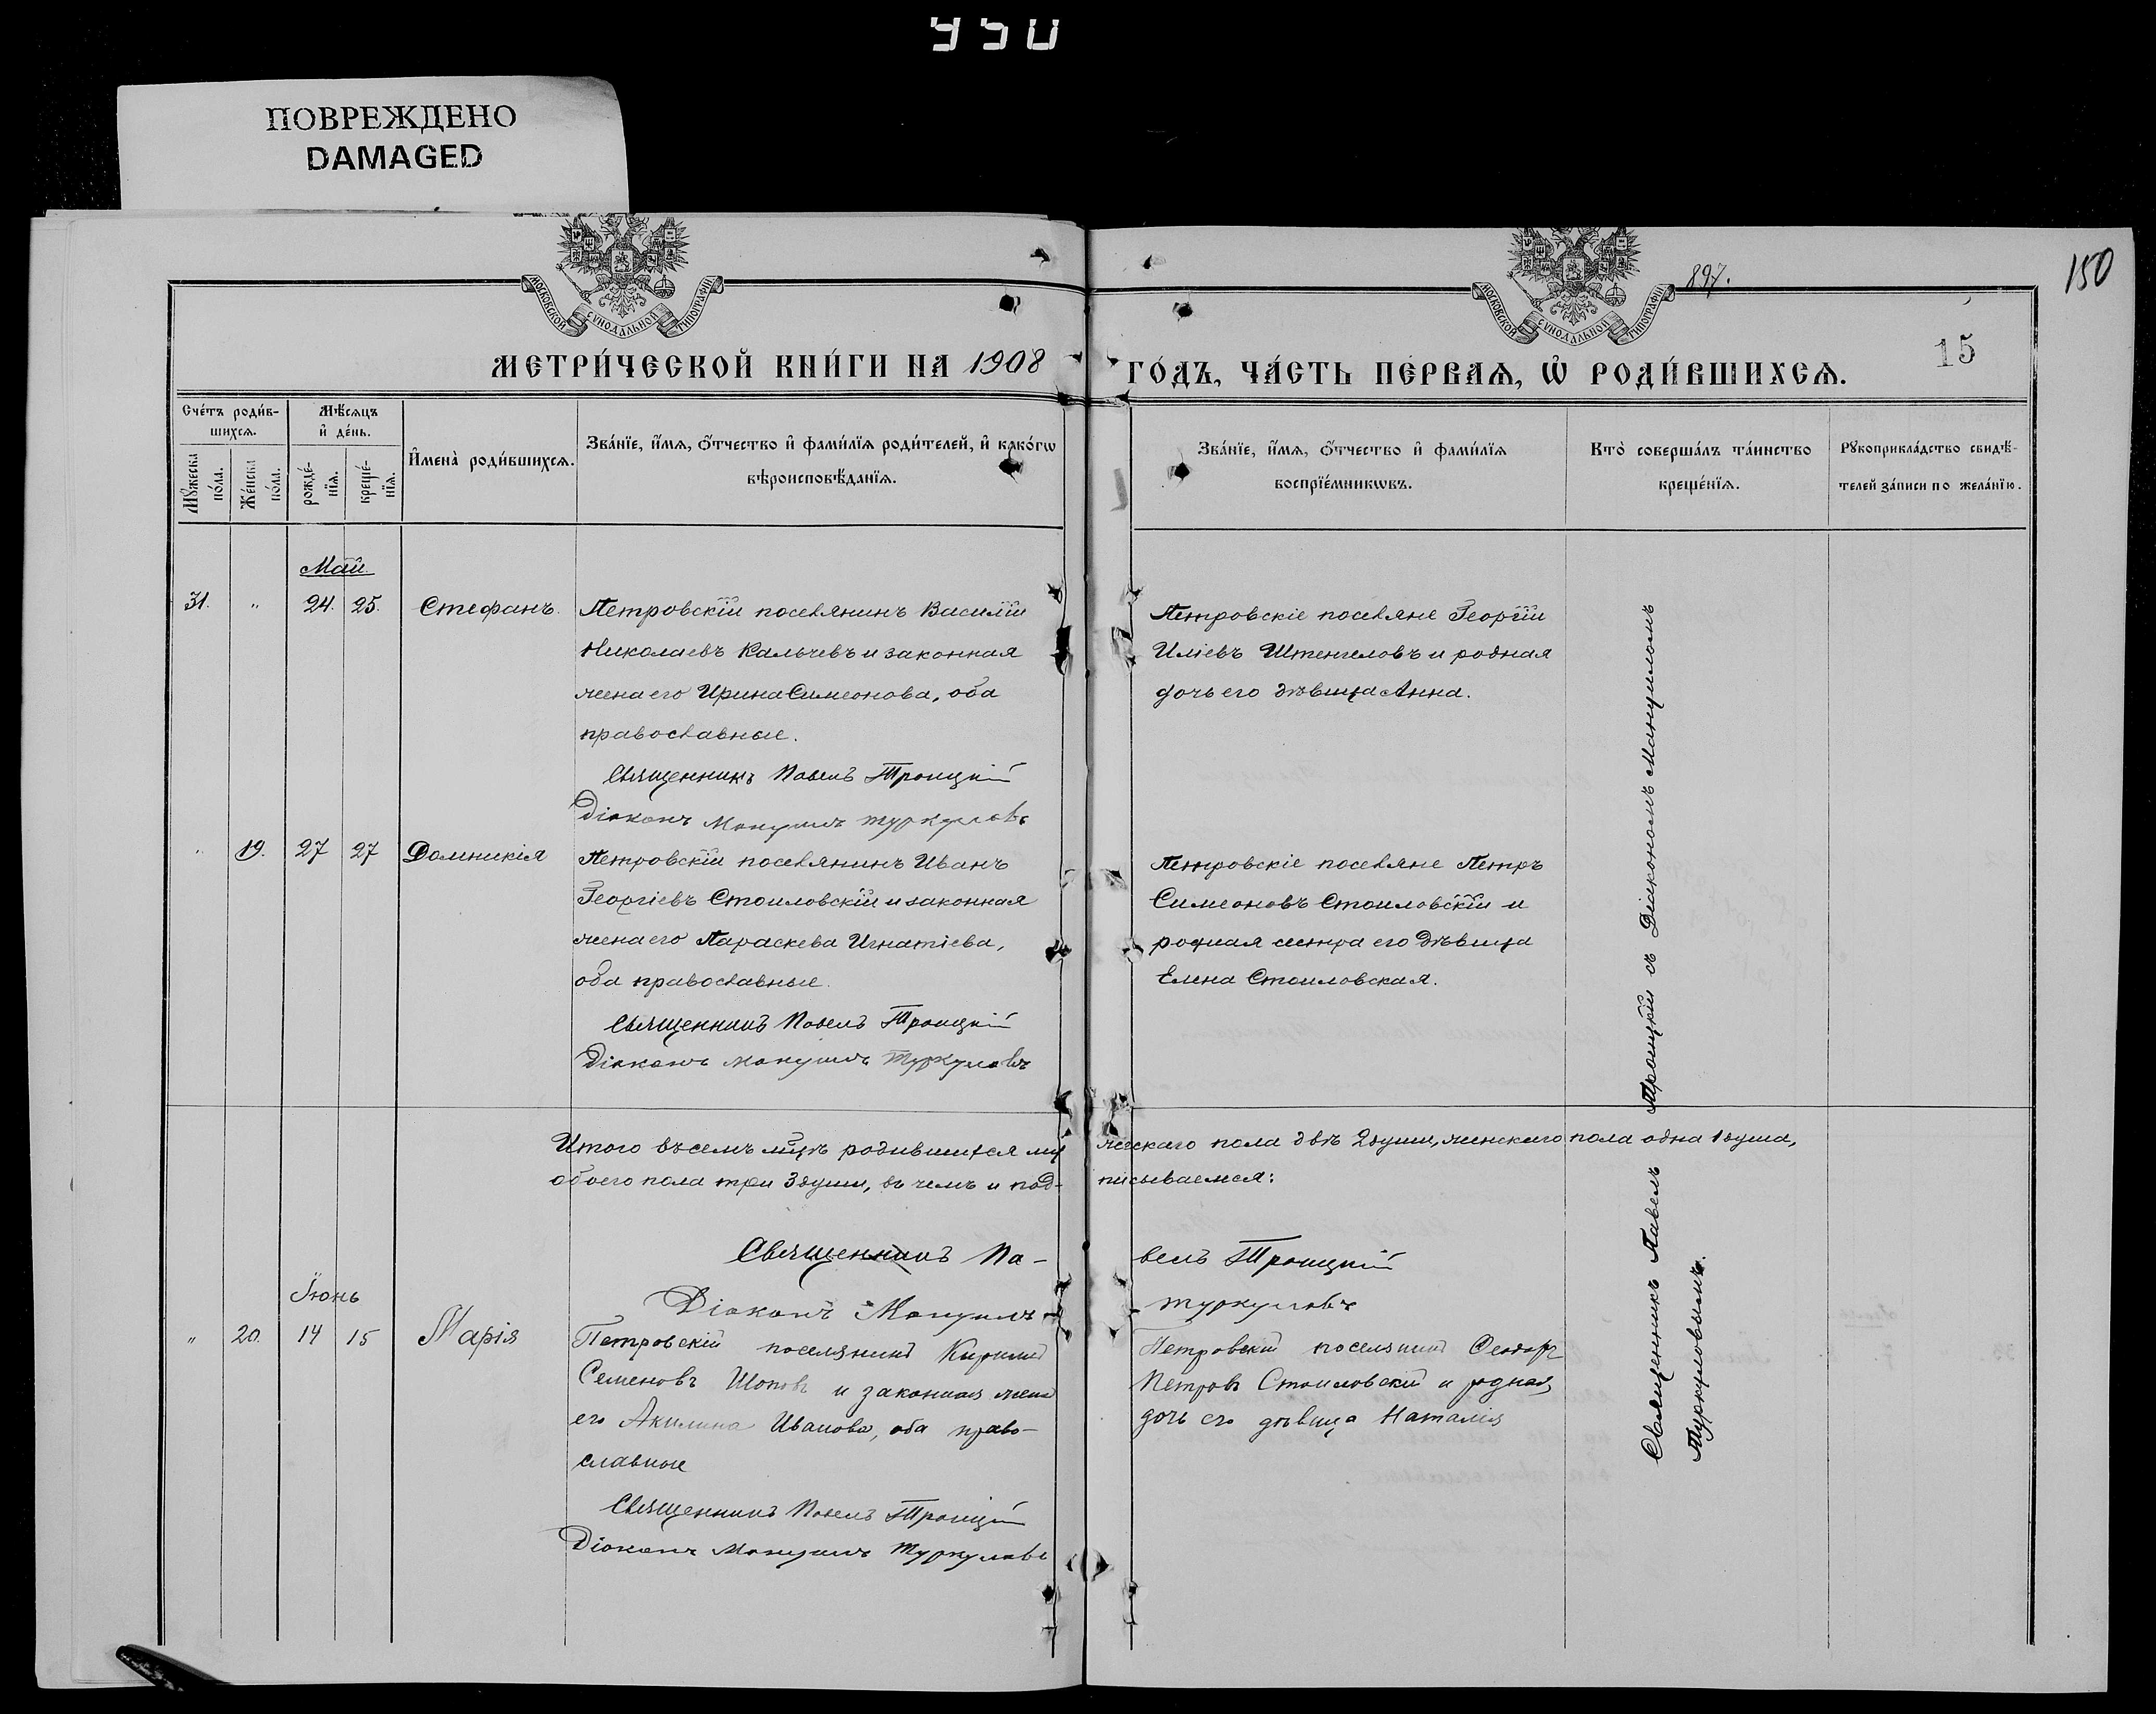 950
ПОВРЕЖДЕНО
DAMAGED
МОСКОВСКОЙ СѴНОДАЛЬНОЙ ТИПОГРАФІИ
МОСКОВСКОЙ СѴНОДАЛЬНОЙ ТИПОГРАФІИ
897.
150
15
МЕТРИ́ЧЕСКОЙ КНИ́ГИ НА 1908
ГО́ДЪ, ЧА́СТЬ ПЕ́РВАѦ, Ѡ҆ РОДИ́ВШИХСѦ.
Сче́тъ роди́в-
шихсѧ.
Мѣ́сѧцъ
и҆ де́нь.
Мꙋ́жеска
по́ла.
Же́нска
по́ла.
рожде́-
нїѧ.
креще́-
нїѧ.
И҆мена̀ роди́вшихсѧ.
Зва́нїе, и҆́мѧ, ѻ҆́тчество и҆ фами́лїѧ роди́телей, и҆ како́гѡ
вѣроисповѣ́данїѧ.
Зва́нїе, и҆́мѧ, ѻ҆́тчество и҆ фами́лїѧ
воспрїе́мникѡвъ.
Кто̀ соверша́лъ та́инство
креще́нїѧ.
Рꙋкоприкла́дство свидѣ́-
телей за́писи по жела́нїю.
Май.
31. " 24. 25. Стефанъ.
Петровскій поселянинъ Василій
Николаевъ Кальчевъ и законная
жена его Ирина Симеонова, оба
православные.
Священникъ Павелъ Троицкій
Діаконъ Мануилъ Туркуловъ
Петровскіе поселяне Георгій
Иліевъ Штенгеловъ и родная
дочь его дѣвица Анна.
" 19. 27 27 Домникія
Петровскій поселянинъ Иванъ
Георгіевъ Стоиловскій и законная
жена его Параскева Игнатіева,
оба православные.
Священникъ Павелъ Троицкій
Діаконъ Мануилъ Туркуловъ
Петровскіе поселяне Петръ
Симеоновъ Стоиловскій и
родная сестра его дѣвица
Елена Стоиловская.
Итого въ семъ мцѣ родившихся муж
ческаго пола двѣ 2 души, женскаго пола одна 1 душа,
обоего пола три 3 души, въ чемъ и под-
писываемся:
Священникъ Па-
велъ Троицкій
Діаконъ Мануилъ
Туркуловъ
Іюнь
" 20. 14 15 Марія
Петровскій поселянинъ Кириллъ
Семеновъ Шоповъ и законная жена
его Акилина Иванова, оба право-
славные
Священникъ Павелъ Троицкій
Діаконъ Мануилъ Туркуловъ
Петровскій поселянинъ Ѳеодоръ
Петровъ Стоиловскій и родная
дочь его дѣвица Наталія
Священникъ Павелъ Троицкій съ Діакономъ Мануиломъ
Туркуловымъ.